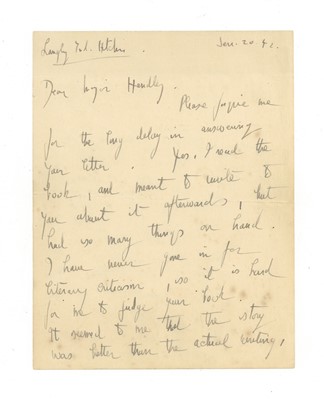 Langley End. Hitchin. Jan. 20. 42.
Dear Major Handley.
Please forgive me
for the long delay in answering
your letter. Yes, I read the
book, and meant to write to
you about it afterwards, but
had so many things on hand.
I have never gone in for
literary criticism, so it is hard
for me to judge your book.
It seemed to me that the story
was better than the actual writing,